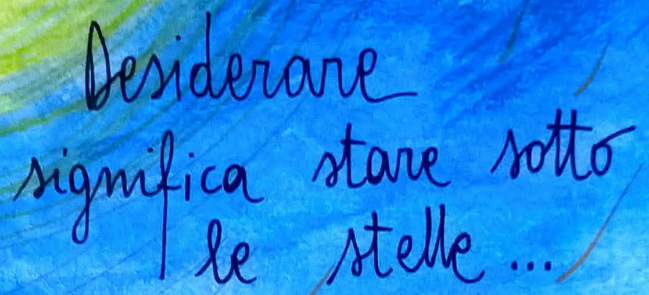 Desiderare
significa stare sotto
le stelle...